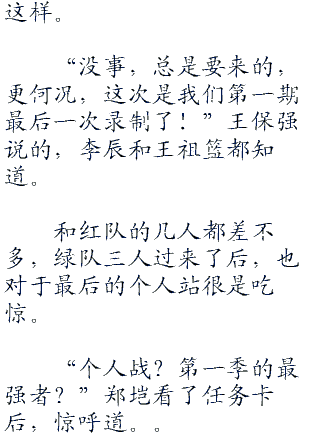 这样。
“没事，总是要来的，
更何况，这次是我们第一期
最后一次录制了！”王保强
说的，李辰和王祖篮都知
道。
和红队的几人都差不
多，绿队三人过来了后，也
对于最后的个人站很是吃
惊。
“个人战？第一季的最
强者？”郑垲看了任务卡
后，惊呼道。。